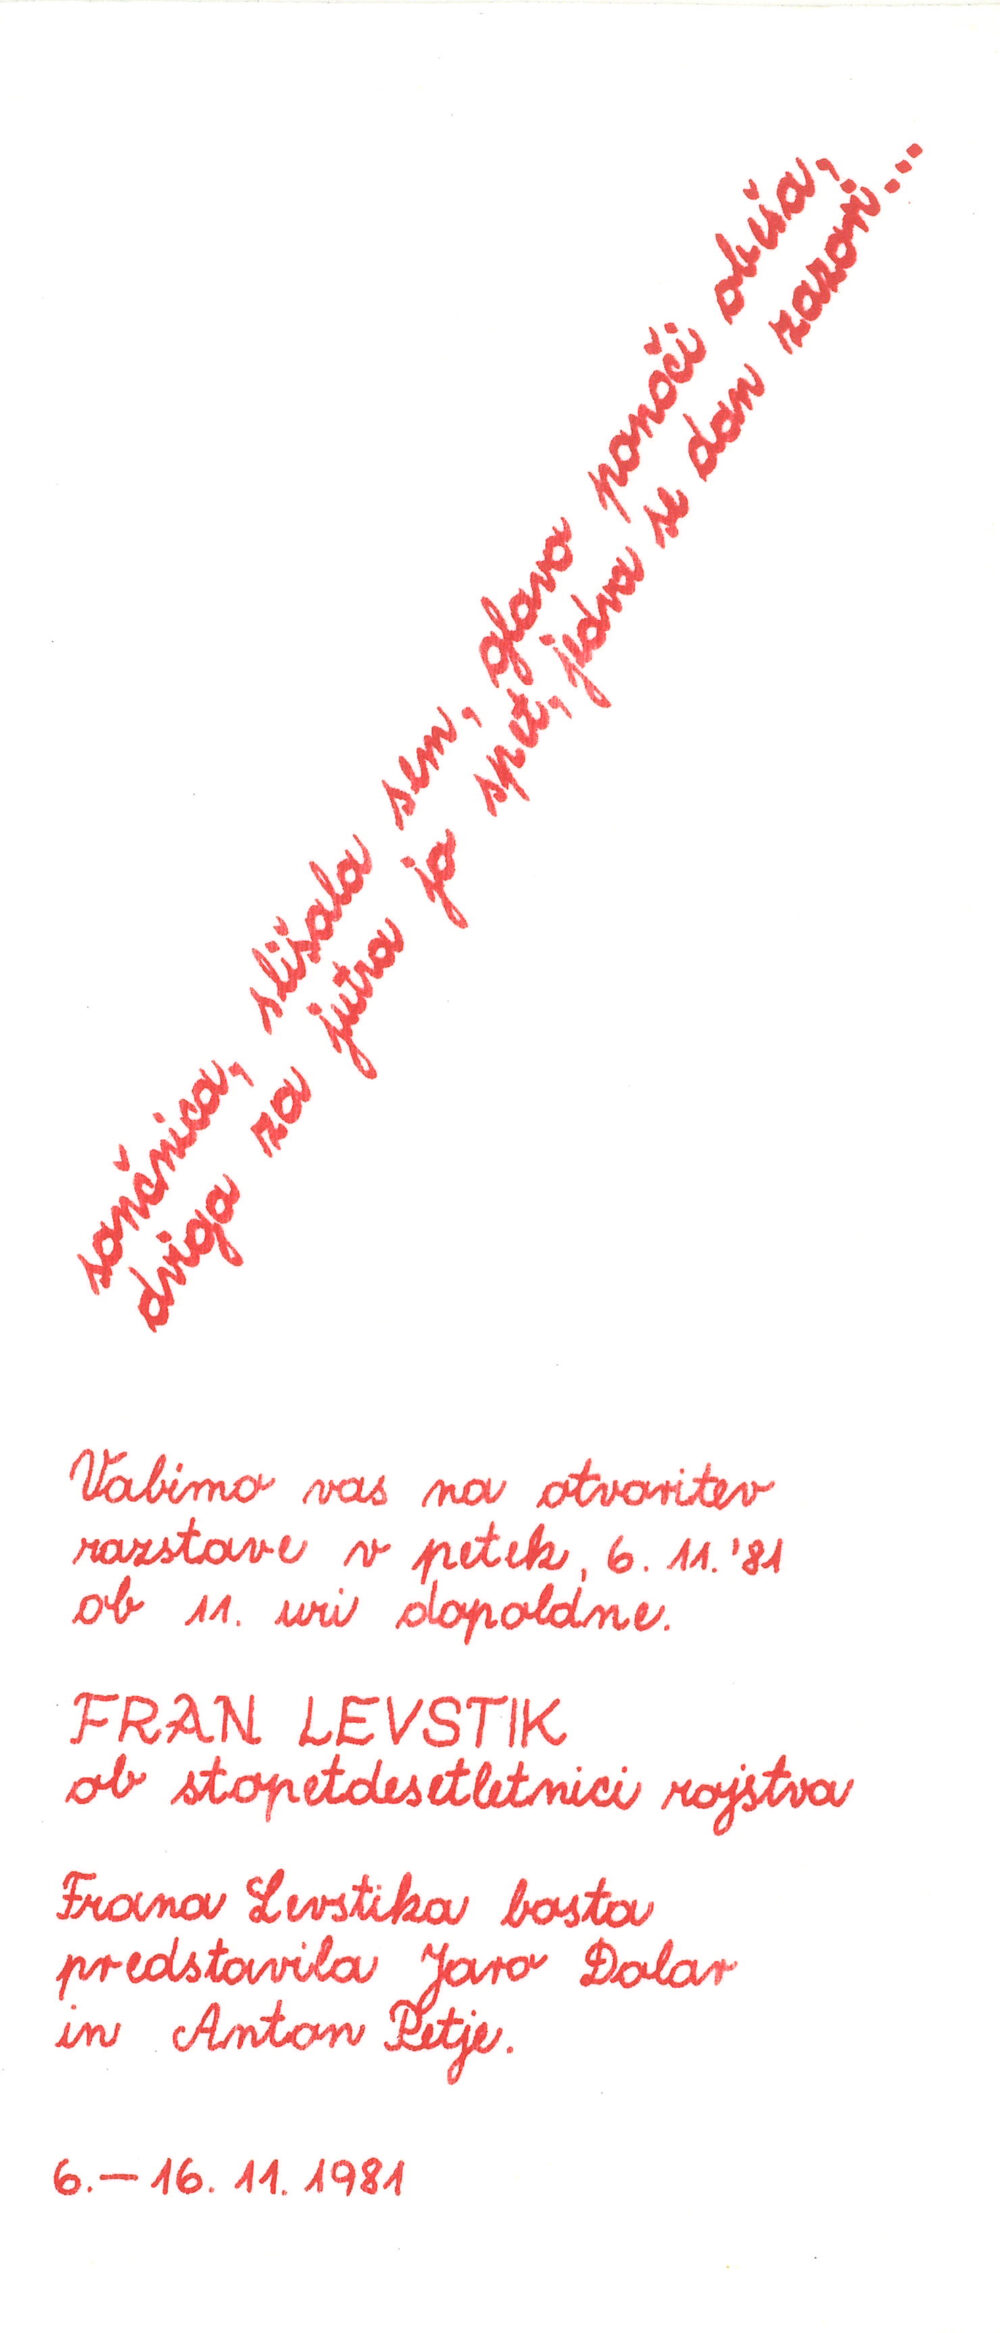 sončnica, slišala sem, glavo ponoči obeša,
dviga za jutra jo spet, jedva se dan zazori...
Vabimo vas na otvoritev
razstave v petek, 6. 11. '81
ob 11. uri dopoldne.
FRAN LEVSTIK
ob stopetdesetletnici rojstva
Frana Levstika bosta
predstavila Jaro Dolar
in Anton Petje.
6. – 16. 11. 1981